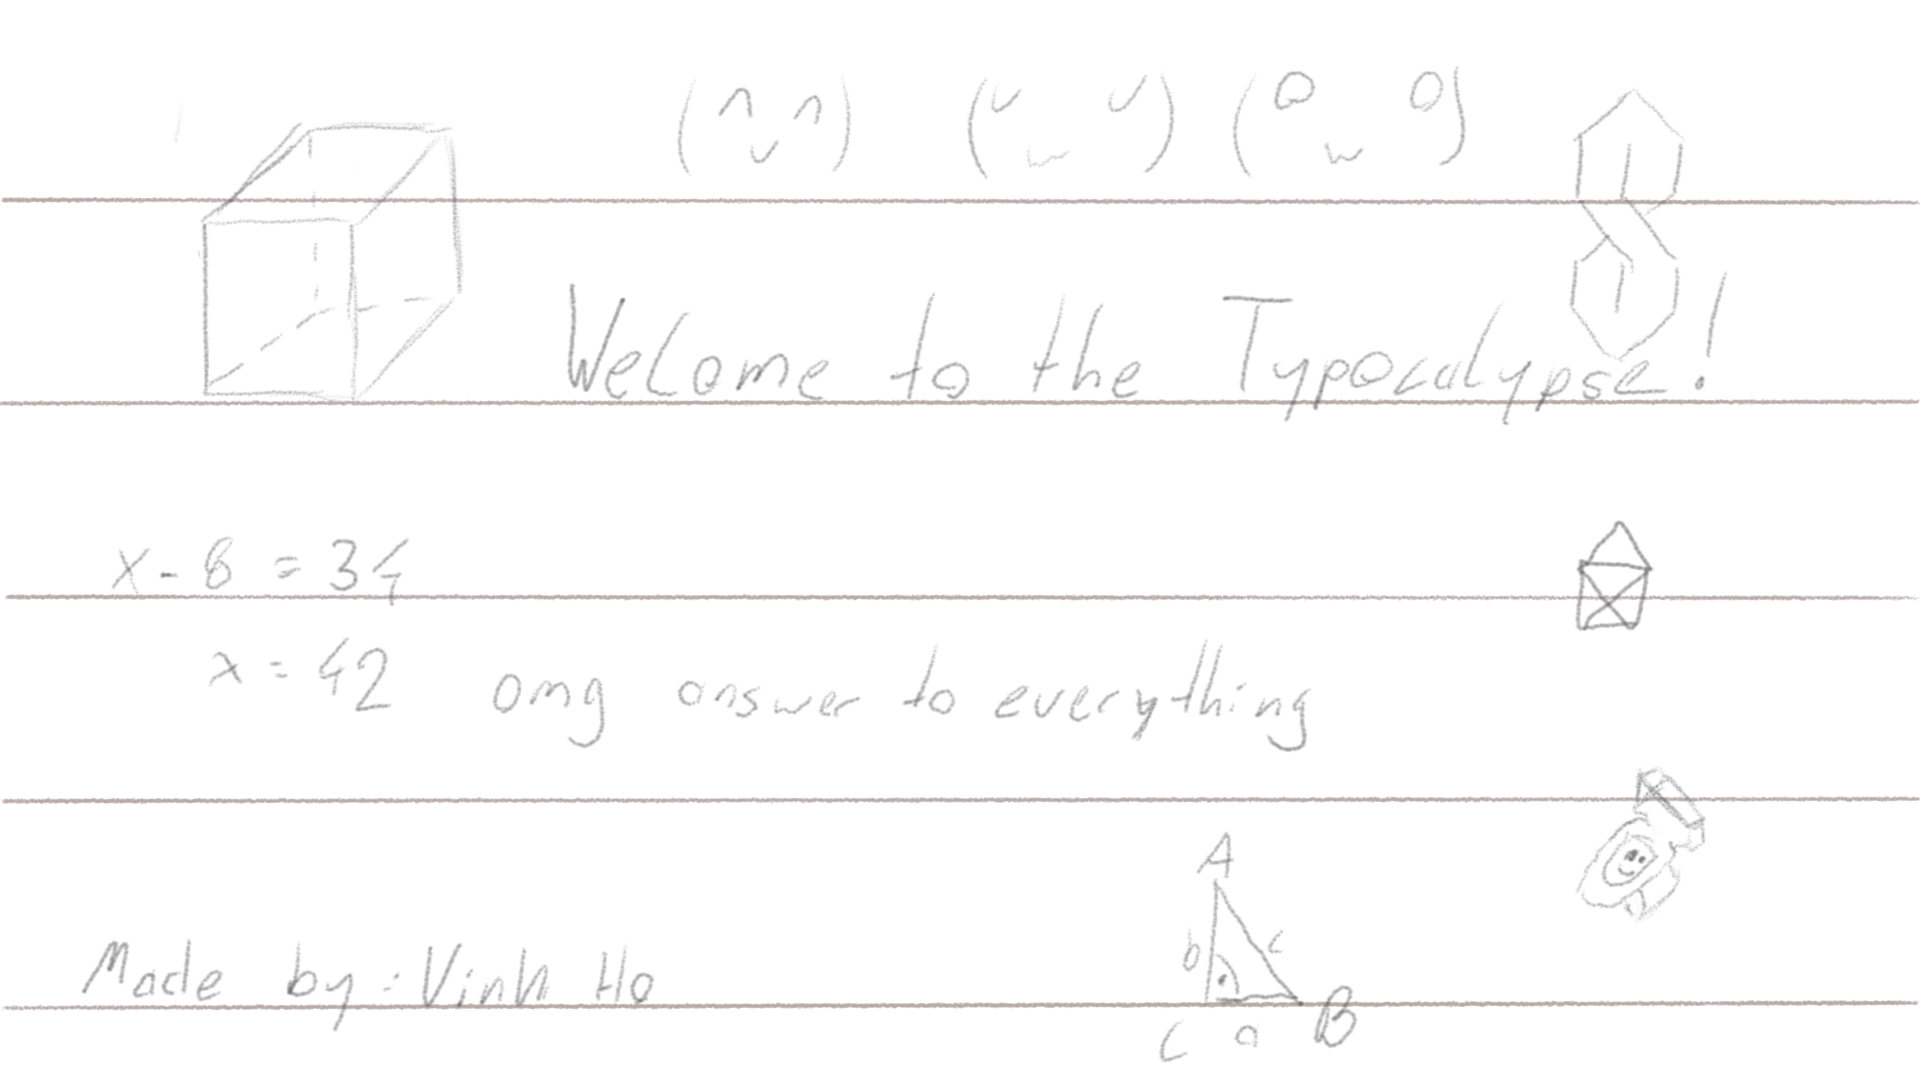 (n v n) (u w u) (o w o)
Welcome to the Typocalypse!
x - 8 = 34
x = 42 omg answer to everything
A
b c
Made by: Vinh Ho
C a B